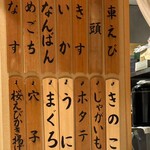 車えび
頭
いか
なんばん
めごち
なす
きのこ
じゃがいも
ホタテ
うに
まぐろ
穴子
桜えびかき揚